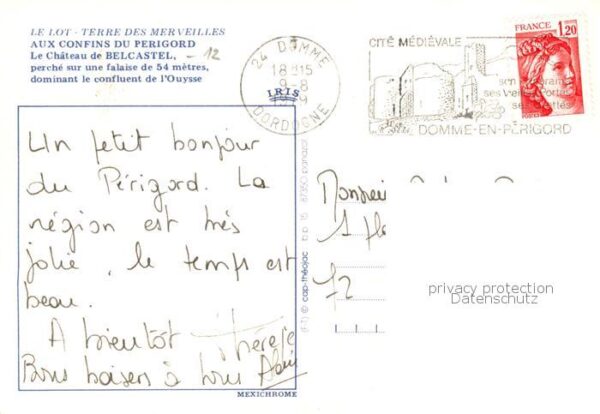 LE LOT - TERRE DES MERVEILLES
AUX CONFINS DU PERIGORD
Le Château de BELCASTEL, - 12
perché sur une falaise de 54 mètres,
dominant le confluent de l'Ouysse
IRIS
24 DOMME
18H15
9-8
DORDOGNE
CITÉ MÉDIÉVALE
son
ses Portes
ses
DOMME-EN-PÉRIGORD
FRANCE
1,20
Un petit bonjour
du Périgord. La
région est très
jolie, le temps est
beau.
A bientôt Thérèse
Bons baisers à tous Alain
MEXICHROME
cap-théojac b.p. 15 87350 panazol
Monsieur
1
72
privacy protection
Datenschutz